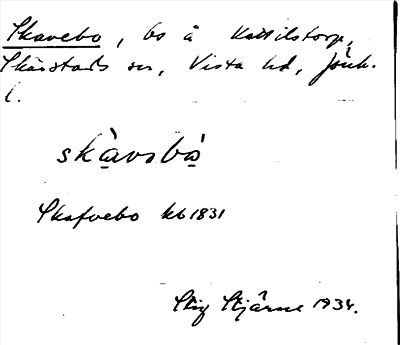 Skavebo, bs å Kättilstorp,
Skärstads sn, Vista hd, Jönk.
l.
skàvabò
Skafvebo kb 1831
Stig Stjärne 1934.